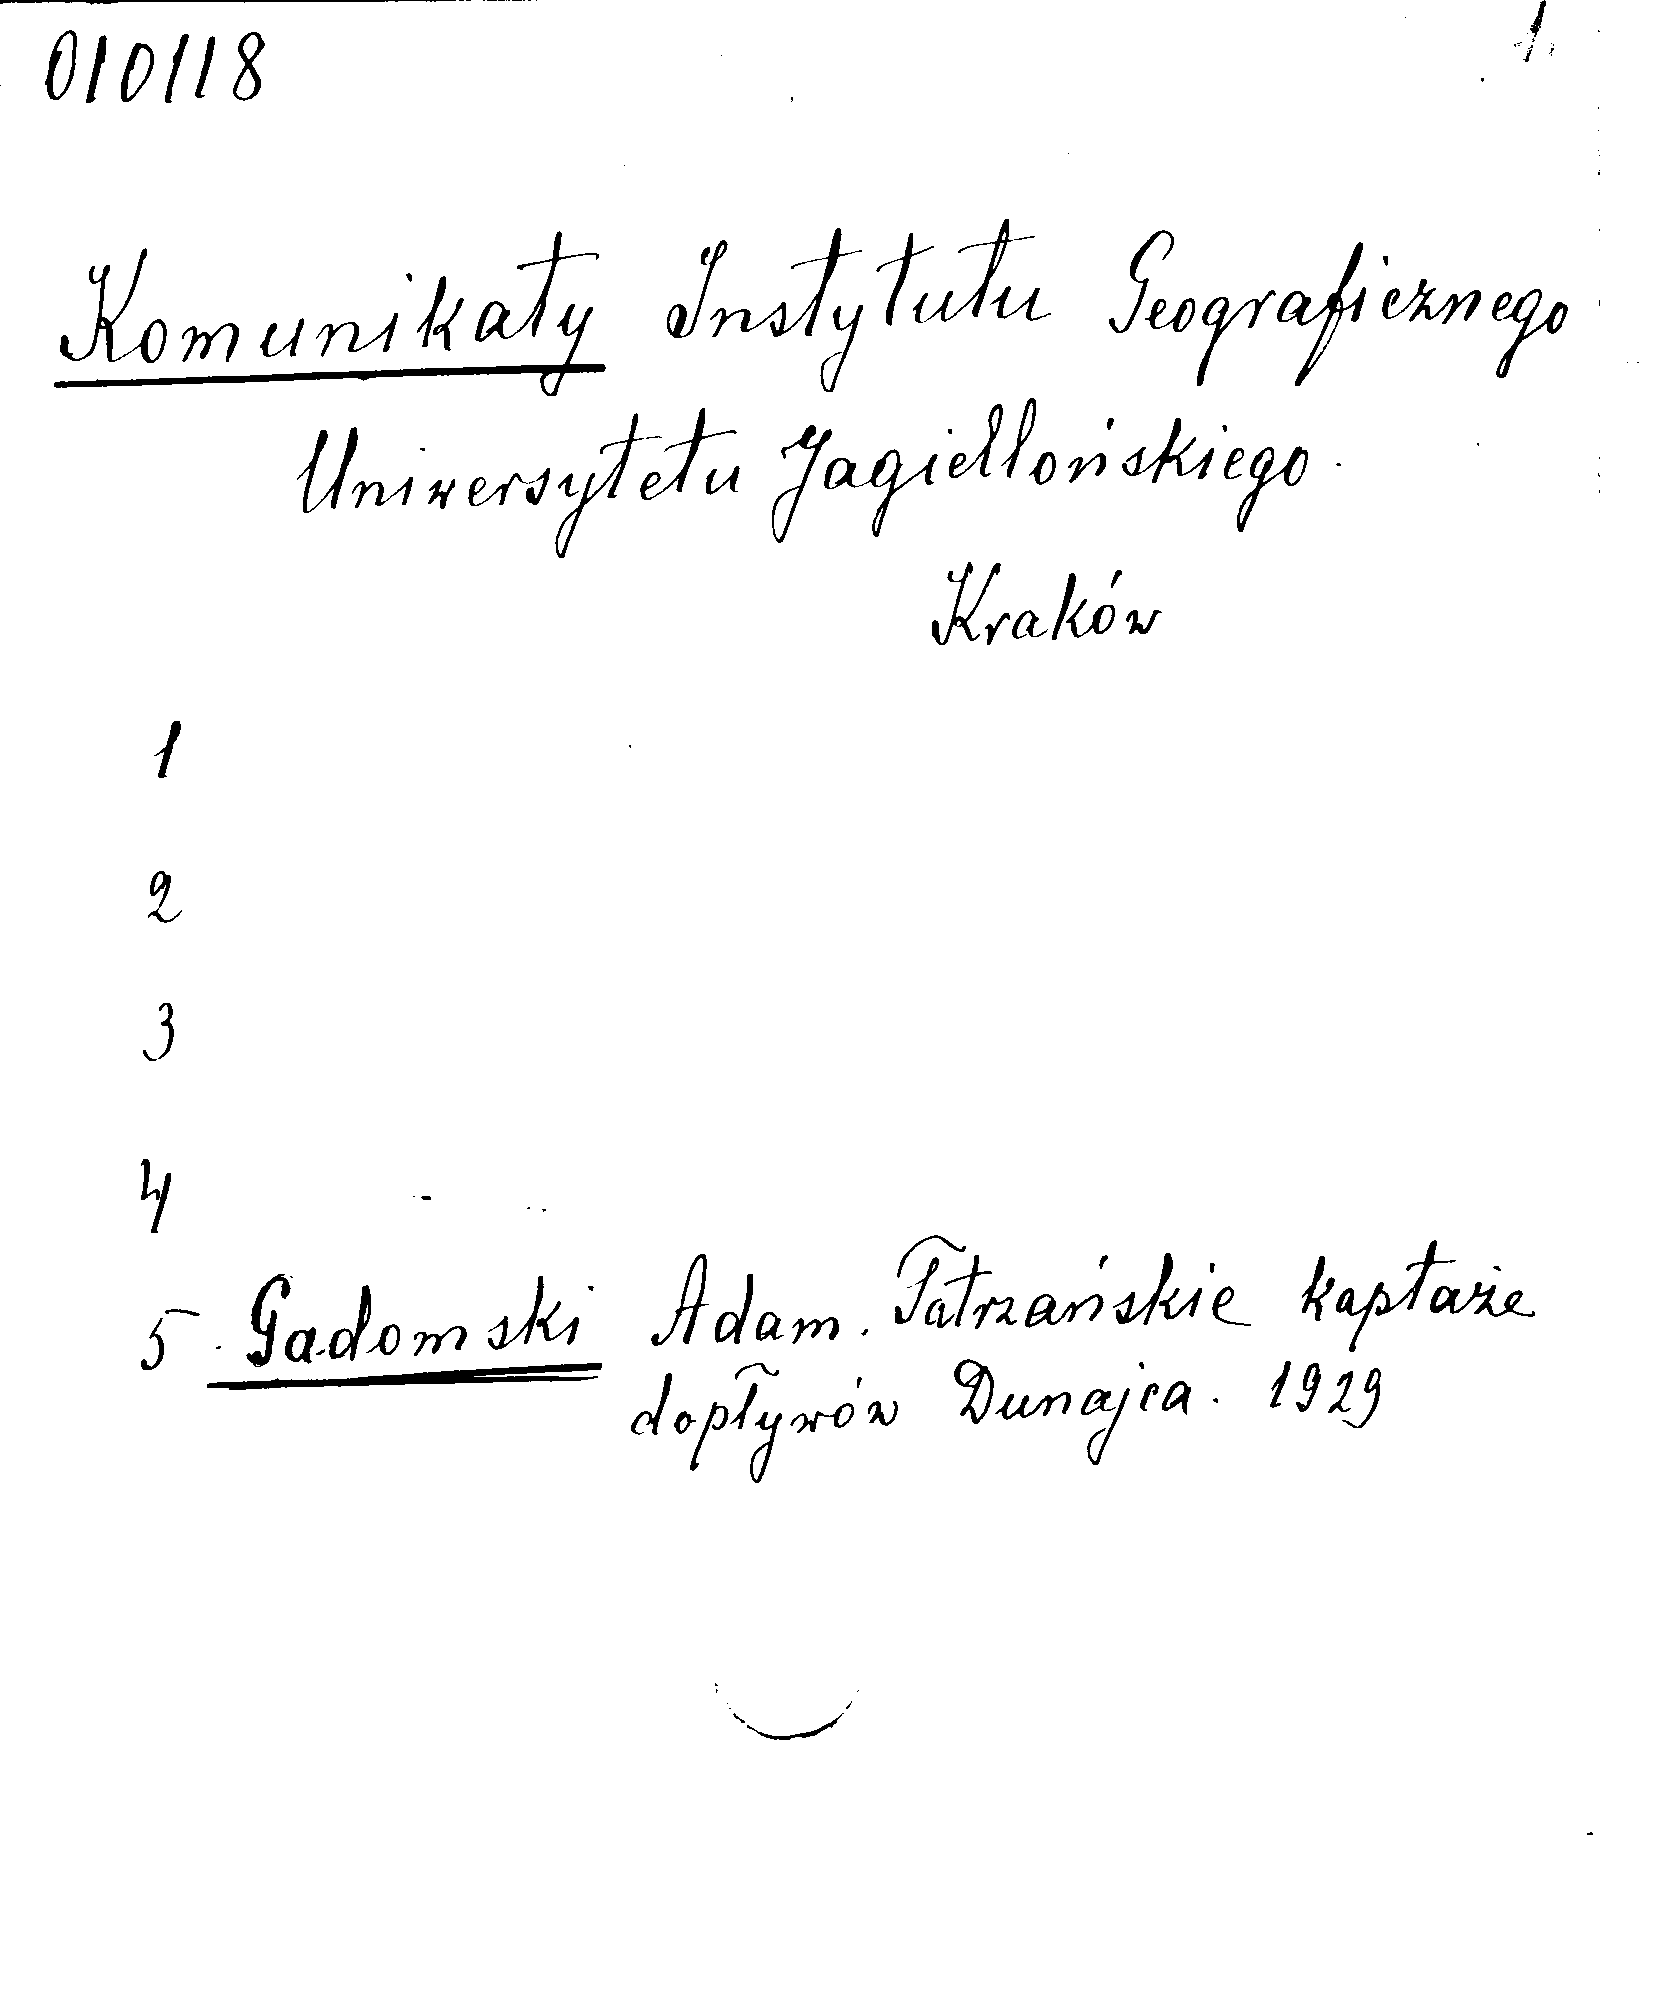 010118
1.
Komunikaty Instytutu Geograficznego
Uniwersytetu Jagiellońskiego.
Kraków
1
2
3
4
5. Gadomski Adam. Tatrzańskie kaptaże
dopływów Dunajca. 1929